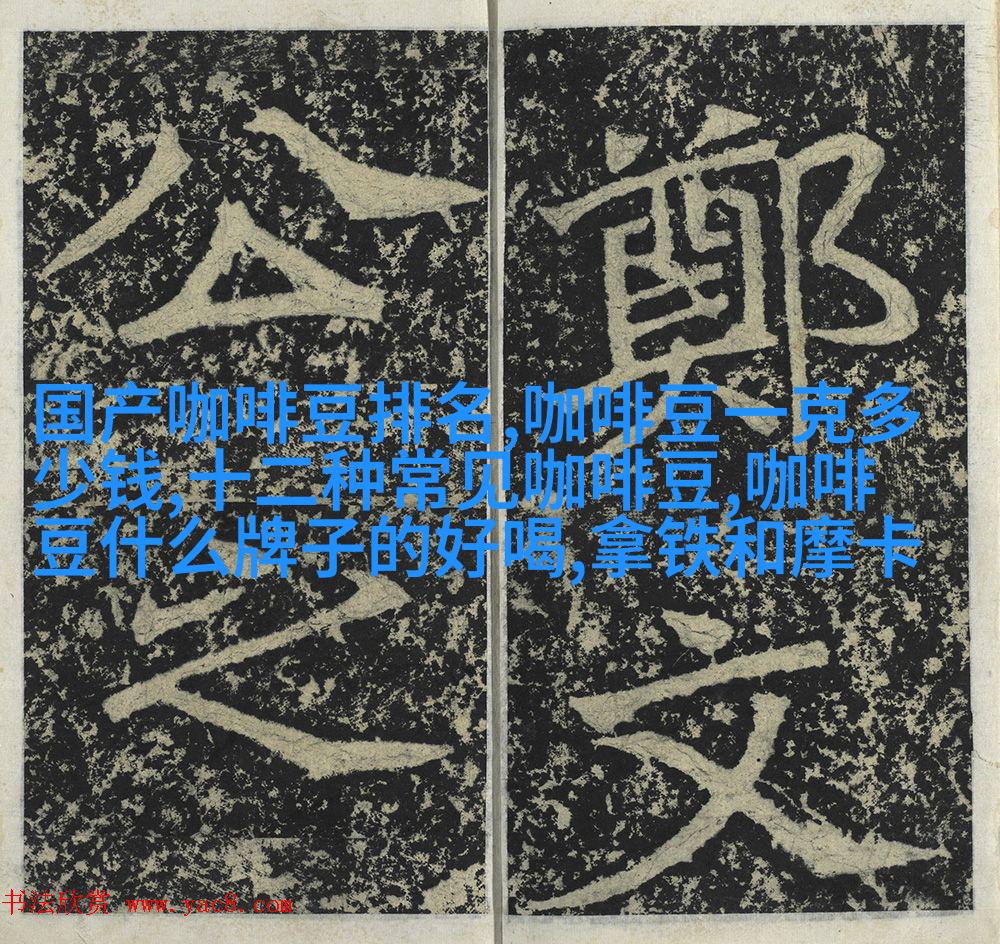 鄭文
公之
国产咖啡豆排名,咖啡豆一克多
少钱,十二种常见咖啡豆,咖啡
豆什么牌子的好喝,拿铁和摩卡
书法欣赏 www.yac8.com